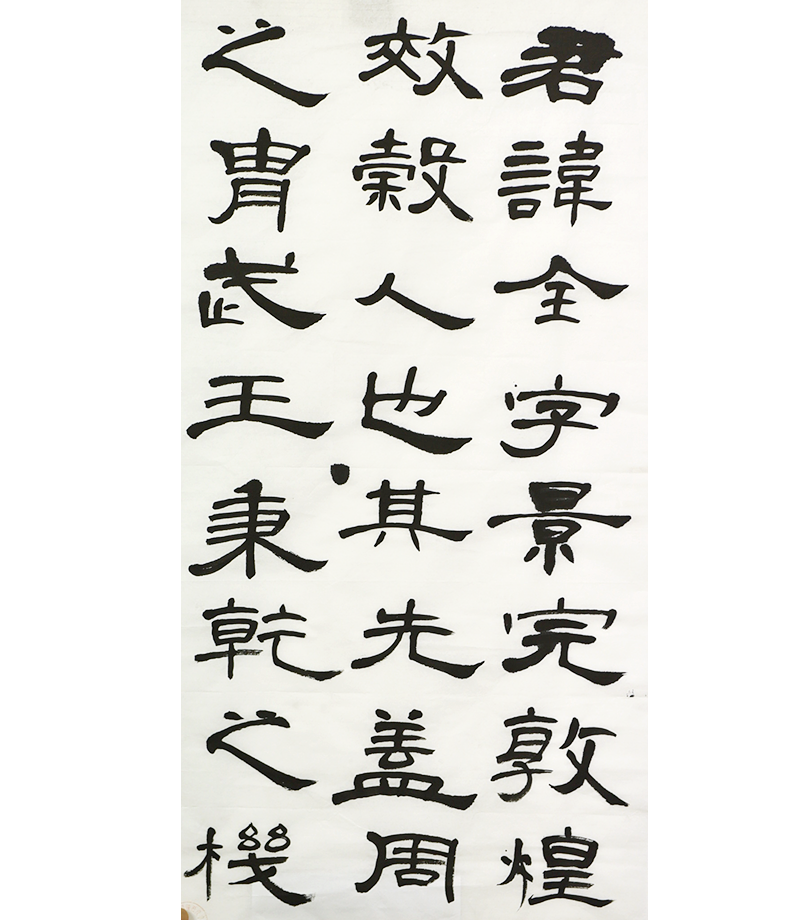 君諱全字景完敦煌
效穀人也其先盖周
之胄武王秉乾之機